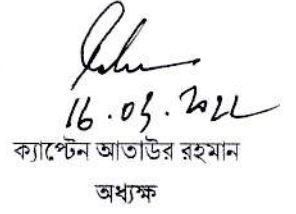 16.03.2022
ক্যাপ্টেন আতাউর রহমান
অধ্যক্ষ